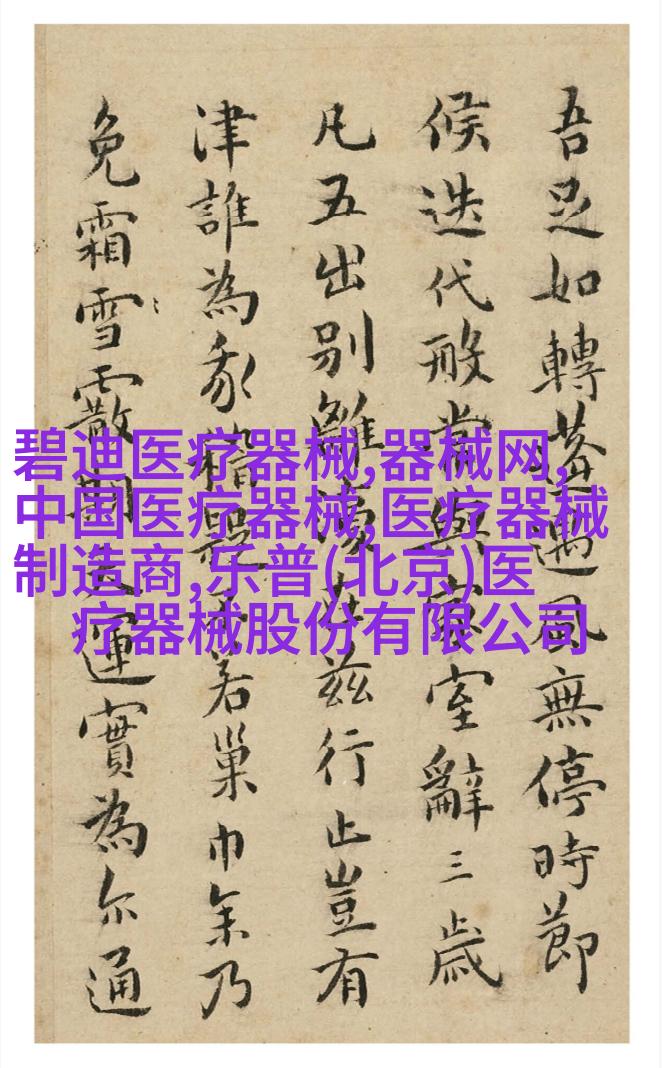 吾足如轉蓬遇風無停時節
候迭代般當與家室辭三歲
凡五出別離
在茲行止豈有
津誰為
稽
若巢巾余乃
免霜雪霰
運實為尔通
碧迪医疗器械,器械网,
中国医疗器械,医疗器械
制造商,乐普(北京)医
疗器械股份有限公司